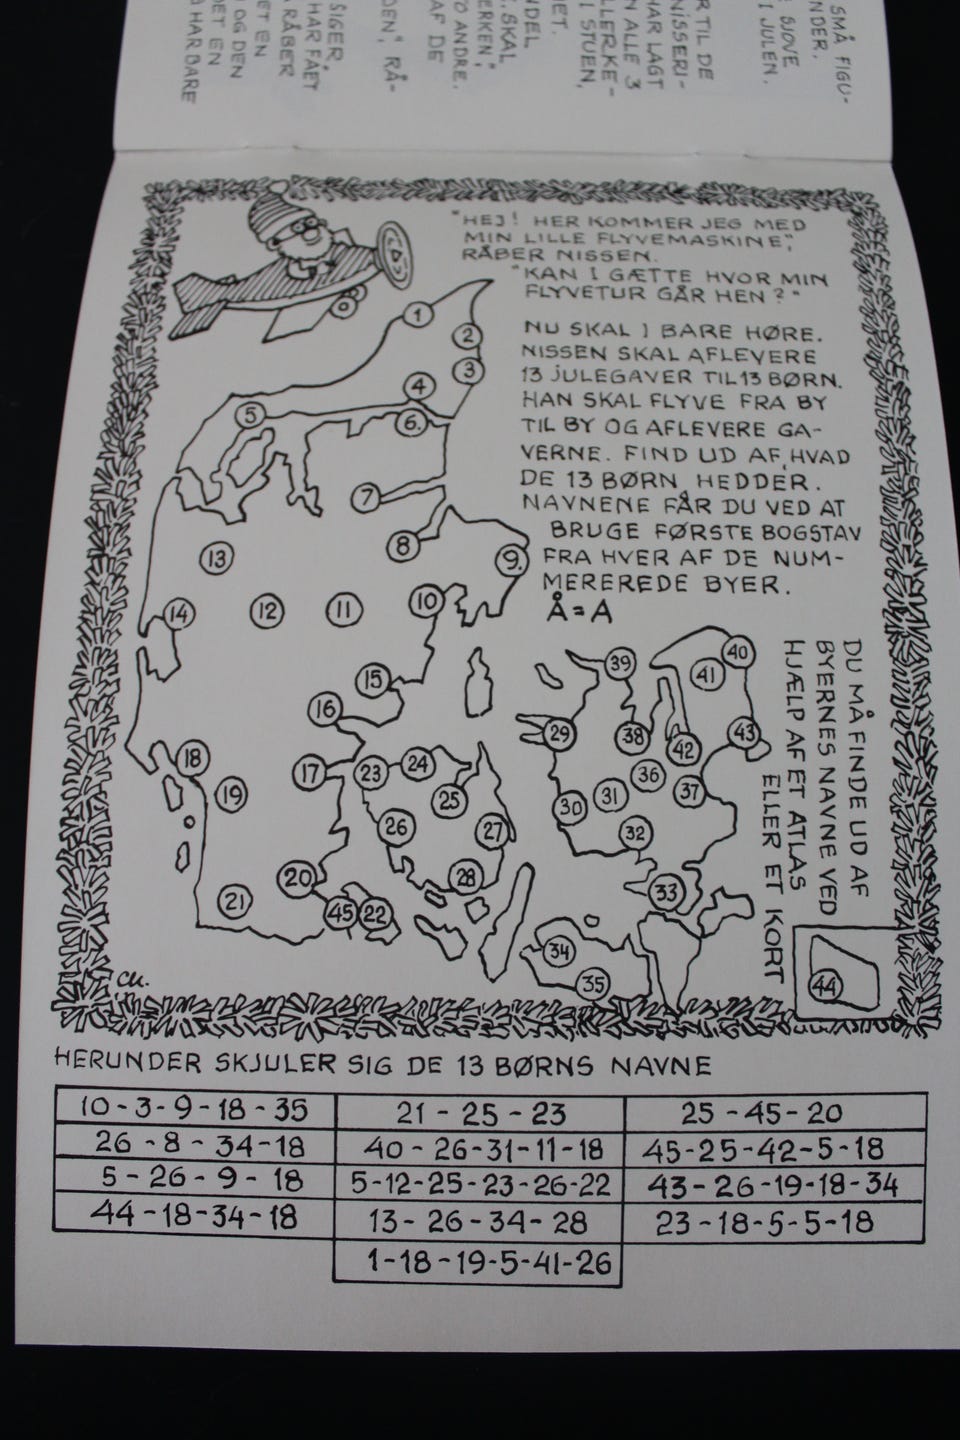 SMÅ FIGU-
NDER.
SJOVE
I JULEN.
R TIL DE
NISSERI-
HAR LAGT
N ALLE 3
LLERKE-
I STUEN,
ET.
NDEL
SKAL
ERKEN,"
O ANDRE.
AF DE
DEN", RÅ-
SIGER
HAR FÅET
RÅBER
ET EN
OG DEN
DET EN
HAR BARE
"HEJ! HER KOMMER JEG MED
MIN LILLE FLYVEMASKINE",
RÅBER NISSEN.
"KAN I GÆTTE HVOR MIN
FLYVETUR GÅR HEN?"
NU SKAL I BARE HØRE.
NISSEN SKAL AFLEVERE
13 JULEGAVER TIL 13 BØRN.
HAN SKAL FLYVE FRA BY
TIL BY OG AFLEVERE GA-
VERNE. FIND UD AF, HVAD
DE 13 BØRN HEDDER.
NAVNENE FÅR DU VED AT
BRUGE FØRSTE BOGSTAV
FRA HVER AF DE NUM-
MEREREDE BYER.
Å = A
DU MÅ FINDE UD AF
BYERNES NAVNE VED
HJÆLP AF ET ATLAS
ELLER ET KORT
1
2
3
4
5
6.
7
8
9.
10
11
12
13
14
15
16
17
18
19
20
21
45
22
23
24
25
26
27
28
29
30
31
32
33
34
35
36
37
38
39
40
41
42
43
44
CU.
HERUNDER SKJULER SIG DE 13 BØRNS NAVNE
10 - 3 - 9 - 18 - 35
21 - 25 - 23
25 - 45 - 20
26 - 8 - 34 - 18
40 - 26 - 31 - 11 - 18
45-25-42-5-18
5 - 26 - 9 - 18
5-12-25-23-26-22
43 - 26 -19-18-34
44 -18-34-18
13 - 26 - 34 - 28
23 -18-5-5-18
1-18-19-5-41-26